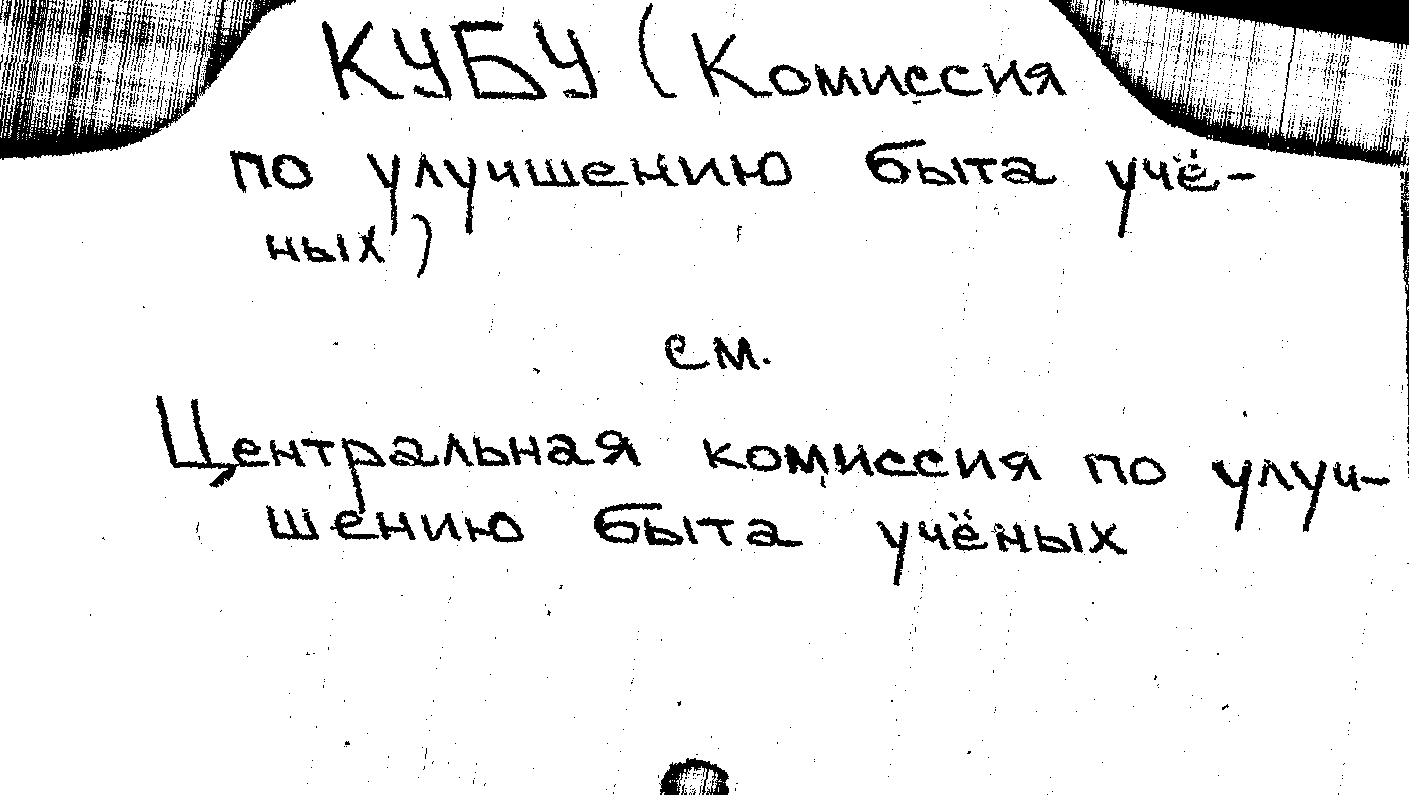 КУБУ (Комиссия
по улучшению быта учё-
ных)
см.
Центральная комиссия по улуч-
шению быта учёных